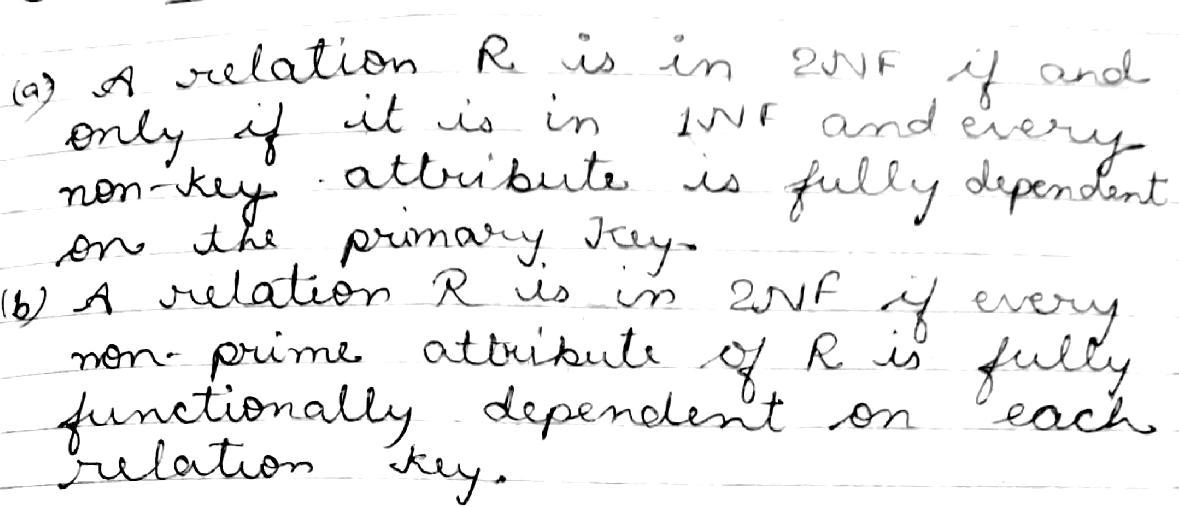 (a) A relation R is in 2NF if and
only if it is in 1NF and every
non-key attribute is fully dependent
on the primary key.
(b) A relation R is in 2NF if every
non-prime attribute of R is fully
functionally dependent on each
relation key.